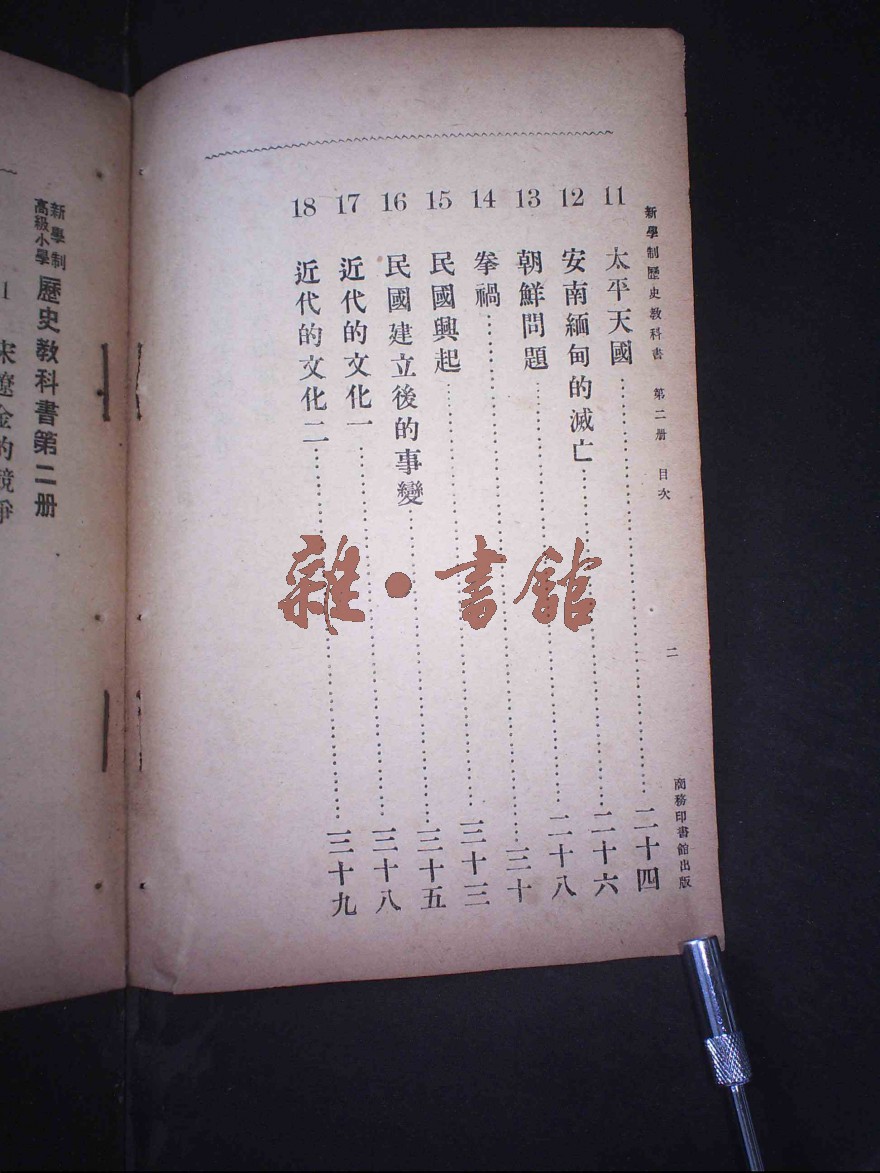 新學制歷史教科書 第二册 目次 二 商務印書館出版
11 太平天國……二十四
12 安南緬甸的滅亡……二十六
13 朝鮮問題……二十八
14 拳禍……三十
15 民國興起……三十三
16 民國建立後的事變……三十五
17 近代的文化一……三十八
18 近代的文化二……三十九
雜·書館
新學制
高級小學
歷史教科書第二册
1 宋遼金的競爭